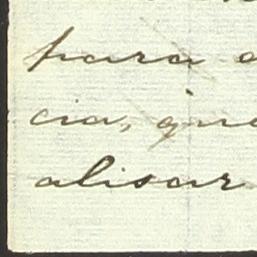 para
cia, que
alisar